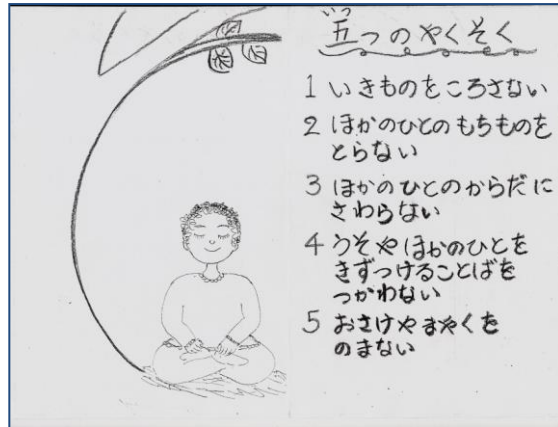 いつ
五つのやくそく
1 いきものをころさない
2 ほかのひとのもちものを
とらない
3 ほかのひとのからだに
さわらない
4 うそやほかのひとを
きずつけることばを
つかわない
5 おさけやまやくを
のまない